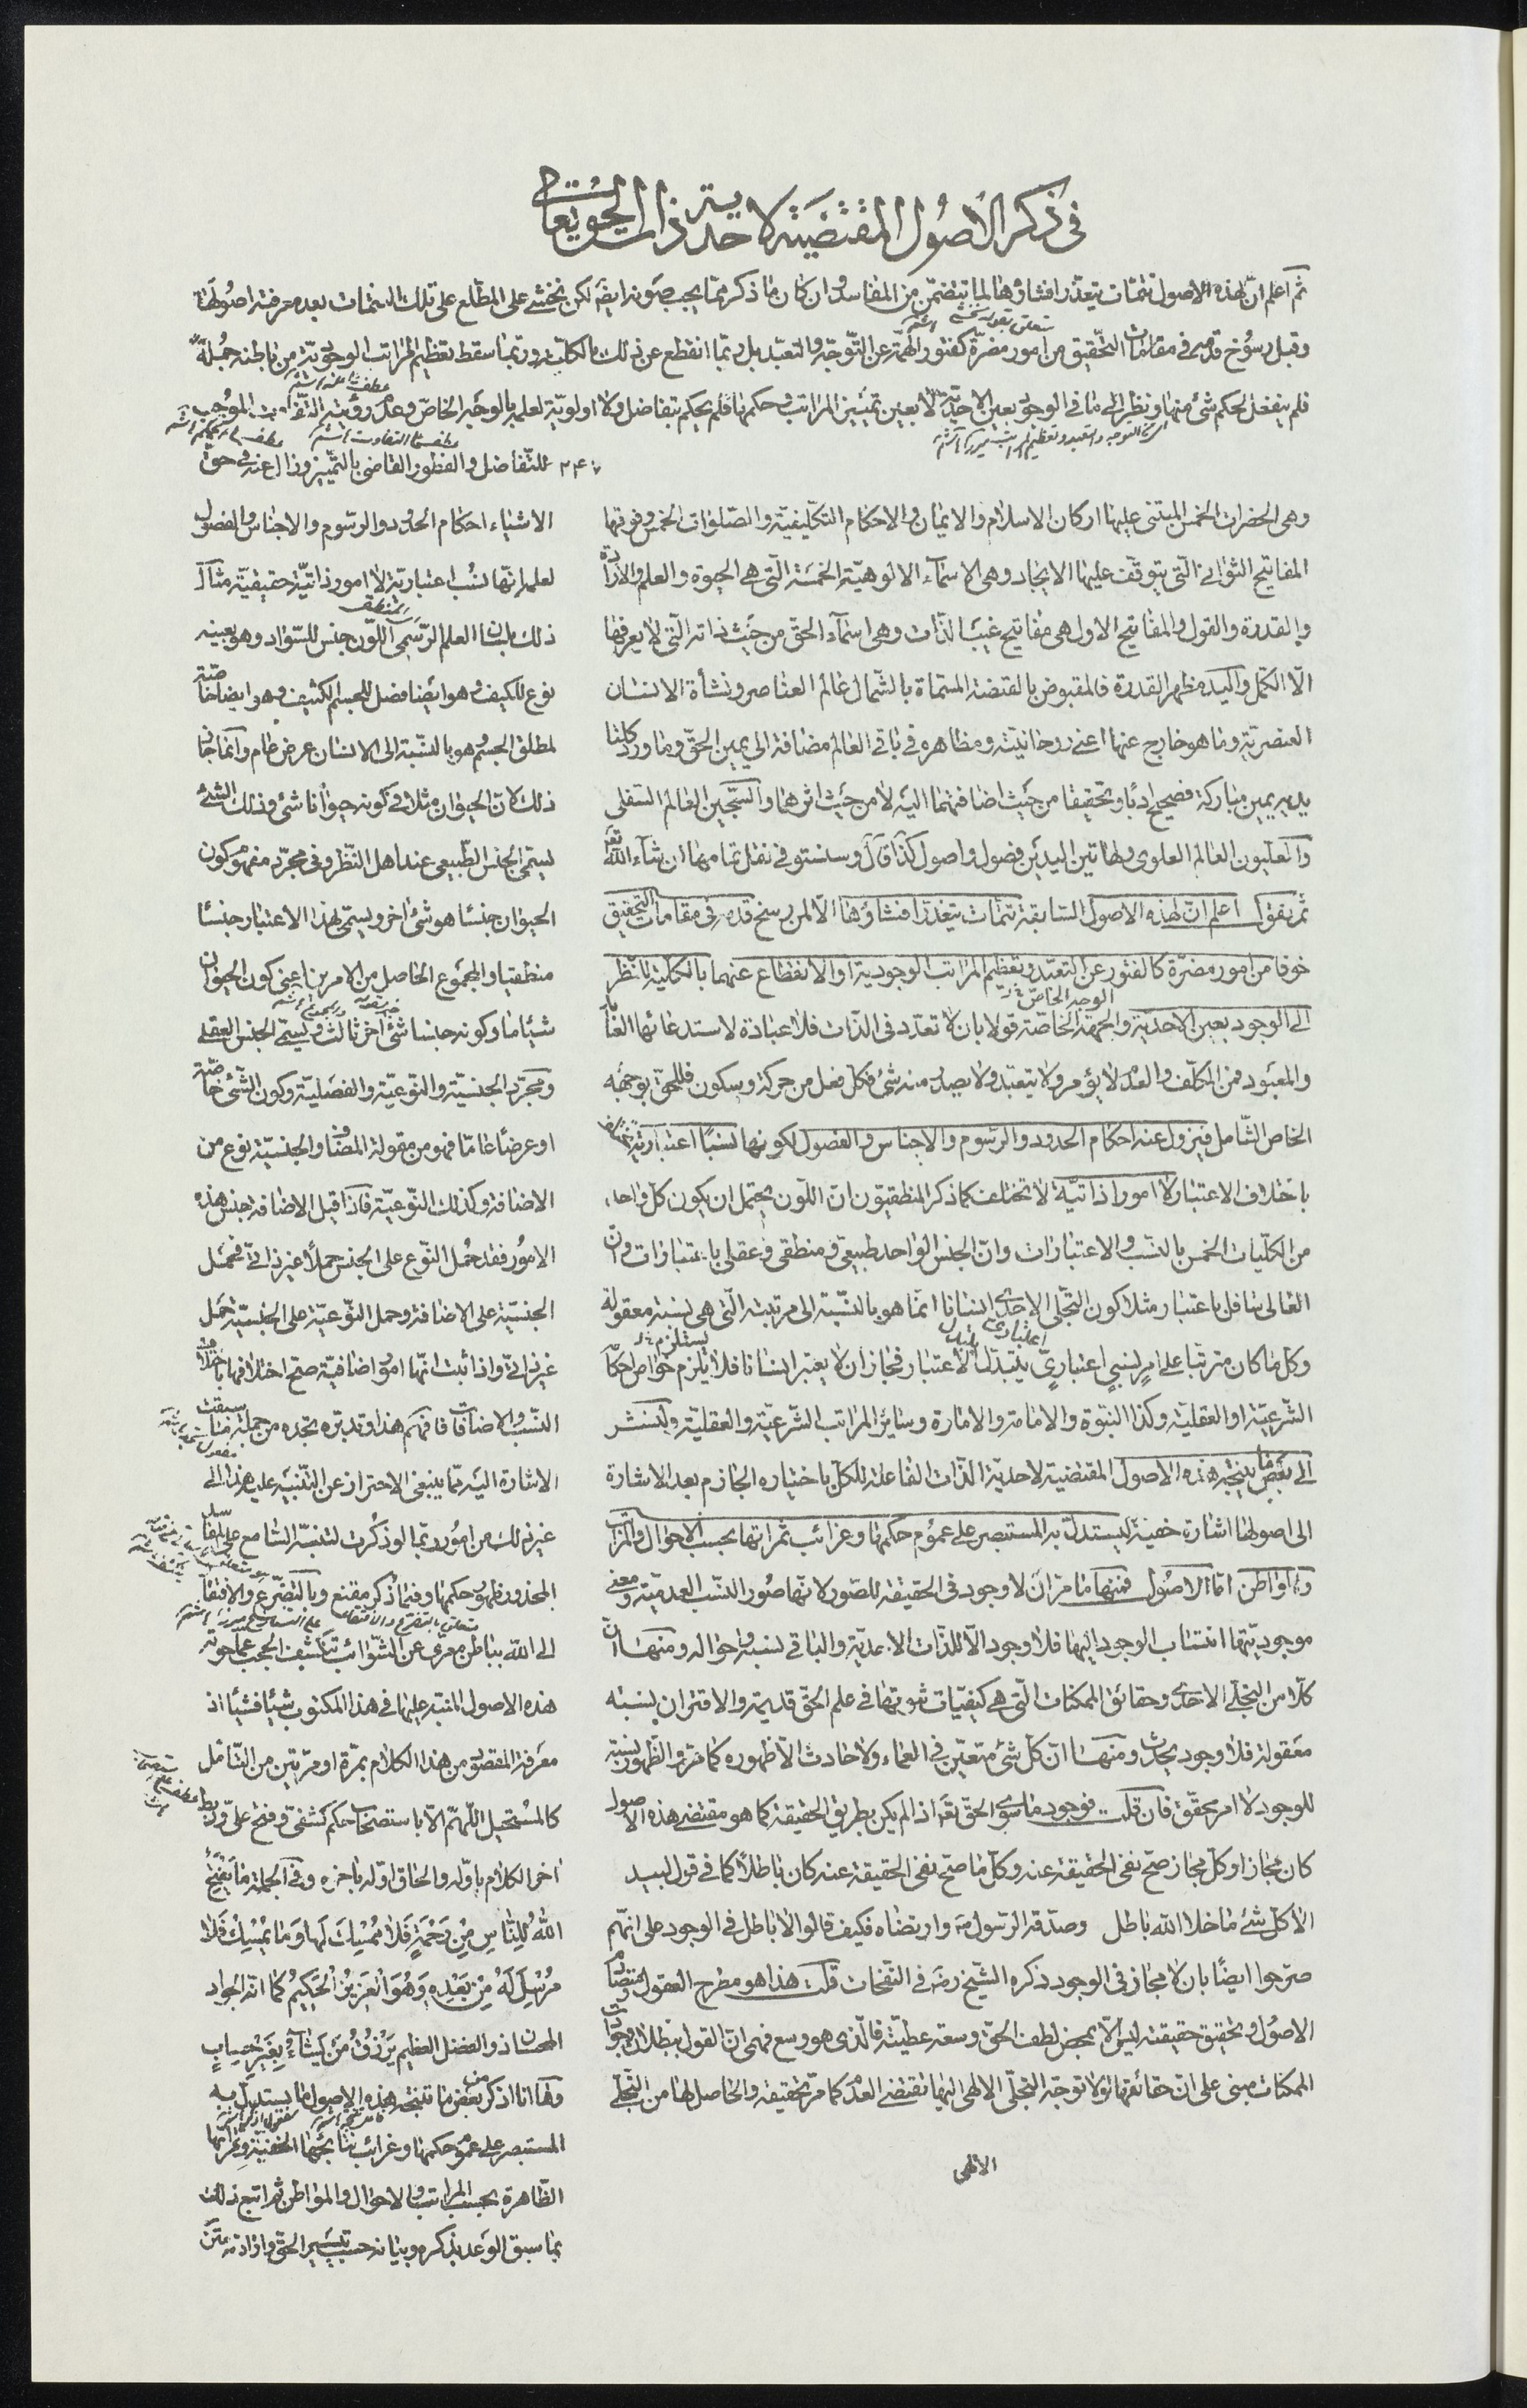 في ذكر الأصول المقتضية لاحدية ذات الحق تعالى
ثم اعلم ان لهذه الاصول تتمات يتعذر افشاؤها لما يتضمن من المفاسد وان كان ما ذكر مما يجب صونه ايضا لكن يخشى على المطلع على تلك التتمات بعد معرفة اصولها
وقبل رسوخ قدمه في مقامات التحقيق من امور مضرة كفتور الهمة عن التوجه والتعبد بل ربما انقطع عن ذلك بالكلية وربما سقط تعظيم المراتب الوجودية من باطنه جملة
فلم ينفعل لحكم شئ منها ونظر الى ما في الوجود بعين الاحدية لا بعين تميز المراتب وحكمها فلم يحكم بتفاضل ولا اولوية لعلمه بالوجه الخاص وعدم رؤيته التفاوت الموجب
للتفاضل والفطور القاضي بالتميز وزال عنه في حق
وهي الحضرات الخمس المبتنى عليها اركان الاسلام والايمان والاحكام التكليفية والصلوات الخمس وفوقها
المفاتيح الثواني التي يتوقف عليها الايجاد وهي الاسماء الالوهية الخمسة التي هي الحيوة والعلم والارادة
والقدرة والقول والمفاتيح الاول هي مفاتيح غيب الذات وهي اسماء الحق من حيث ذاته التي لا يعرفها
الا الكمل واليد مظهر القدرة فالمقبوض بالقبضة المسماة بالشمال عالم العناصر ونشأة الانسان
العنصرية وما هو خارج عنها اعني روحانيته ومظاهره في باقي العالم مضافة الى يمين الحق وما ورد كلتا
يديه يمين مباركة فصحيح ادبا وتحقيقا من حيث اضافتهما اليه لا من حيث اثرهما والسجين العالم السفلي
والعليون العالم العلوي ولهاتين اليدين فصول واصول كذا قال وسنستوفي نقل تمامهما ان شاء الله تعالى
ثم نقول اعلم ان لهذه الاصول السابقة تتمات يتعذر افشاؤها الا لمن رسخ قدمه في مقامات التحقيق
خوفا من امور مضرة كالفتور عن التعبد وتعظيم المراتب الوجودية او الانقطاع عنهما بالكلية للنظر
الى الوجود بعين الاحدية والجهة الخاصة قولا بان لا تعدد في الذات فلا عبادة لاستدعائها العابد
والمعبود فمن المكلف والعدم لا يؤمر ولا يتعبد ولا يصدر منه شئ فكل فعل من حركة وسكون فللحق بوجهه
الخاص الشامل فيزول عنه احكام الحدود والرسوم والاجناس والفصول لكونها نسبا اعتبارية تختلف
باختلاف الاعتبار لا امورا ذاتية لا تختلف كما ذكر المنطقيون ان اللون يحتمل ان يكون كل واحد
من الكليات الخمس بالنسب والاعتبارات وان الجنس الواحد طبيعي ومنطقي وعقلي باعتبارات وان
العالي سافل باعتبار مثلا كون التجلي الاحدي انسانا انما هو بالنسبة الى مرتبته التي هي نسبة معقولة
وكل ما كان مرتبا على امر نسبي اعتباري يتبدل الاعتبار فجاز ان لا يعتبر انسانا فلا يلزم خواص احكامه
الشرعية او العقلية وكذا النبوة والامامة والامارة وسائر المراتب الشرعية والعقلية ولنشر
الى بعض ما ينتجه هذه الاصول المقتضية لاحدية الذات الفاعلة للكل باختياره الجازم بعد الاشارة
الى اصولها اشارة خفية ليستدل به المستبصر على عموم حكمها وغرائب ثمراتها بحسب الاحوال والمراتب
والمواطن اما الاصول فمنها ما مر ان لا وجود في الحقيقة للصور لانها صور النسب العدمية ومعنى
موجوديتها انتساب الوجود اليها فلا وجود الا للذات الاحدية والباقي نسبه واحواله ومنها ان
كلا من التجلي الاحدي وحقائق الممكنات التي هي كيفيات ثبوتها في علم الحق قديمة والاقتران نسبة
معقولة فلا وجود يحدث ومنها ان كل شئ متعين في العماء ولا حادث الا ظهوره كما مر والظهور نسبة
للوجود لا امر محقق فان قلت فوجود ما سوى الحق تعالى اذ لم يكن بطريق الحقيقة كما هو مقتضى هذه الاصول
كان مجازا وكل مجاز صح نفي الحقيقة عنه وكل ما صح نفي الحقيقة عنه كان باطلا كما في قول لبيد
الا كل شئ ما خلا الله باطل وصدقه الرسول ص وارتضاه فكيف قالوا لا باطل في الوجود على انهم
صرحوا ايضا بان لا مجاز في الوجود ذكره الشيخ رض في النفحات قلت هذا هو مطرح العقول
الاصول وتحقيق حقيقته ليس الا بمحض لطف الحق وسعة عطيته فالذي هو وسع فهمي ان القول ببطلان وجود
الممكنات مبني على ان حقائقها لولا توجه التجلي الالهي اليها تقتضي العدم كما مر تحقيقه والحاصل لها من التجلي
الالهي
الاشياء احكام الحدود والرسوم والاجناس والفصول
لعلمه انها نسب اعتبارية لا امور ذاتية حقيقية مثال
ذلك بلسان العلم الرسمي اللون جنس للسواد وهو بعينه
نوع للكيف وهو ايضا فصل للجسم الكثيف وهو ايضا خاصة
لمطلق الجسم وهو بالنسبة الى الانسان عرض عام وانما جاز
ذلك لان الحيوان مثلا في كونه حيوانا شئ وذلك الشئ
يسمى الجنس الطبيعي عند اهل النظر وفي مجرد مفهوم كون
الحيوان جنسا هو شئ اخر ويسمى بهذا الاعتبار جنسا
منطقيا والمجموع الحاصل من الامرين اعني كون الحيوان
شيئا ما وكونه جنسا شئ اخر ثالث ويسمى الجنس العقلي
ومجرد الجنسية والنوعية والفصلية وكون الشئ خاصة
او عرضا عاما فهو من مقولة المضاف والجنسية نوع من
الاضافة وكذلك النوعية فاذا قيل الاضافة جنس هذه
الامور فقد حمل النوع على الجنس حملا غير ذاتي فحمل
الجنسية على الاضافة وحمل النوعية على الجنسية حمل
غير ذاتي واذا ثبت انها امور اضافية صح اختلافها باختلاف
النسب والاضافات فافهم هذا وتدبره تجده من جملة ما سبقت
الاشارة اليه مما ينبغي الاحتراز عن التنبيه عليه هذا الى
غير ذلك من امور ربما لو ذكرت لتنبه السامع على المفاسد
المحذور ظهور حكمها وفيما ذكر مقنع وبالتضرع والافتقار
الى الله بباطن معرى عن الشوائب تكشف الحجب عما حوته
هذه الاصول المنبه عليها في هذا المكتوب شيئا فشيئا اذ
معرفة المقصود من هذا الكلام بمرة او مرتين من التامل
كالمستحيل اللهم الا باستصحاب حكم كشفي وفتح علي وربط
اخر الكلام باوله والحاق اوله باخره وفي الجملة ما يفتح
الله للناس من رحمة فلا ممسك لها وما يمسك فلا
مرسل له من بعده وهو العزيز الحكيم كما انه الجواد
المحسان ذو الفضل العظيم يرزق من يشاء بغير حساب
وها انا اذكر بعض ما تنتجه هذه الاصول مما يستدل به
المستبصر على عموم حكمها وغرائب نتائجها الخفية وثمراتها
الظاهرة بحسب المراتب والاحوال والمواطن ثم اتبع ذلك
بما سبق الوعد بذكره وبيانه حسب تيسير الحق وارادته